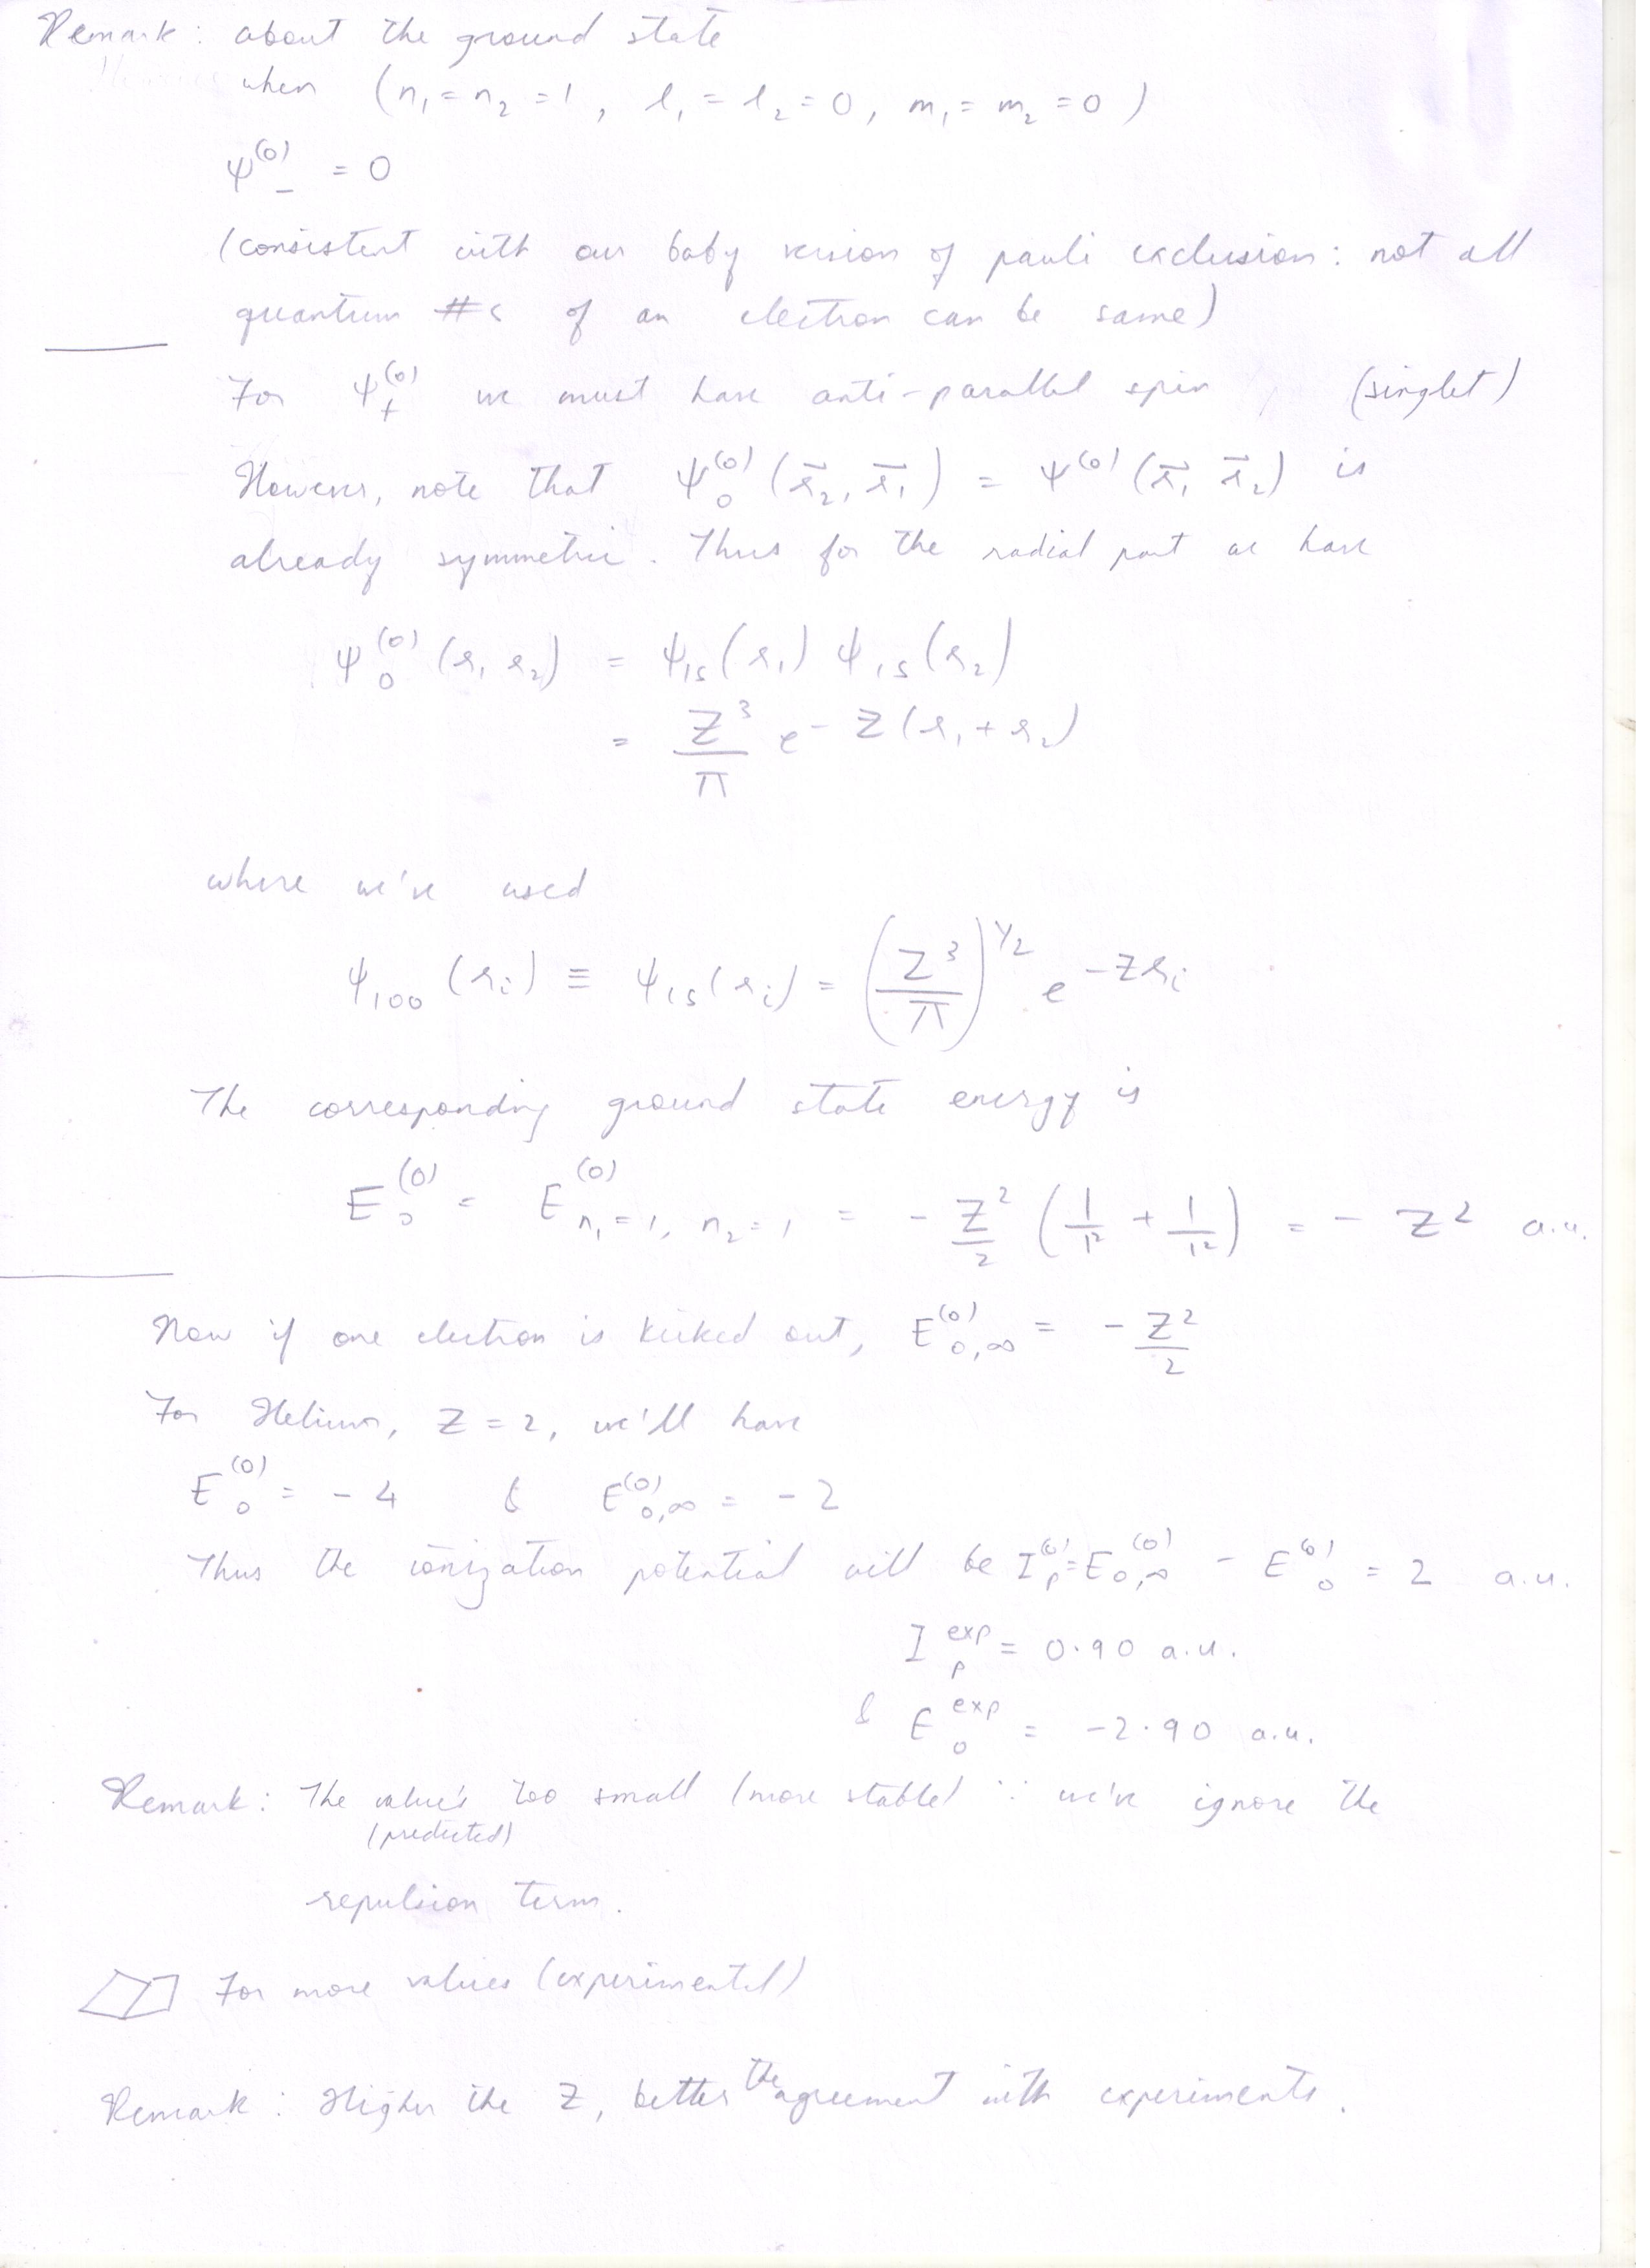 Remark: about the ground state
when (n₁ = n₂ = 1, l₁ = l₂ = 0, m₁ = m₂ = 0)
ψ₋⁽⁰⁾ = 0
(consistent with our baby version of pauli exclusion: not all
quantum #s of an electron can be same)
For ψ₊⁽⁰⁾ we must have anti-parallel spin (singlet)
However, note that ψ₀⁽⁰⁾(r⃗₂, r⃗₁) = ψ⁽⁰⁾(r⃗₁ r⃗₂) is
already symmetric. Thus for the radial part we have
ψ₀⁽⁰⁾(r₁ r₂) = ψ₁ₛ(r₁) ψ₁ₛ(r₂)
= Z³/π e^{-Z(r₁+r₂)}
where we've used
ψ₁₀₀(rᵢ) ≡ ψ₁ₛ(rᵢ) = (Z³/π)^{1/2} e^{-Zrᵢ}
The corresponding ground state energy is
E₀⁽⁰⁾ = E⁽⁰⁾_{n₁=1, n₂=1} = - Z²/2 (1/1² + 1/1²) = - Z² a.u.
Now if one electron is kicked out, E⁽⁰⁾_{0,∞} = - Z²/2
For Helium, Z = 2, we'll have
E₀⁽⁰⁾ = - 4 & E⁽⁰⁾_{0,∞} = - 2
Thus the ionization potential will be I_p⁽⁰⁾ = E⁽⁰⁾_{0,∞} - E₀⁽⁰⁾ = 2 a.u.
I_p^{exp} = 0.90 a.u.
& E₀^{exp} = -2.90 a.u.
Remark: The value's too small (more stable) ∵ we've ignore the
(predicted)
repulsion term.
For more values (experimental)
Remark: Higher the Z, better the agreement with experiments.